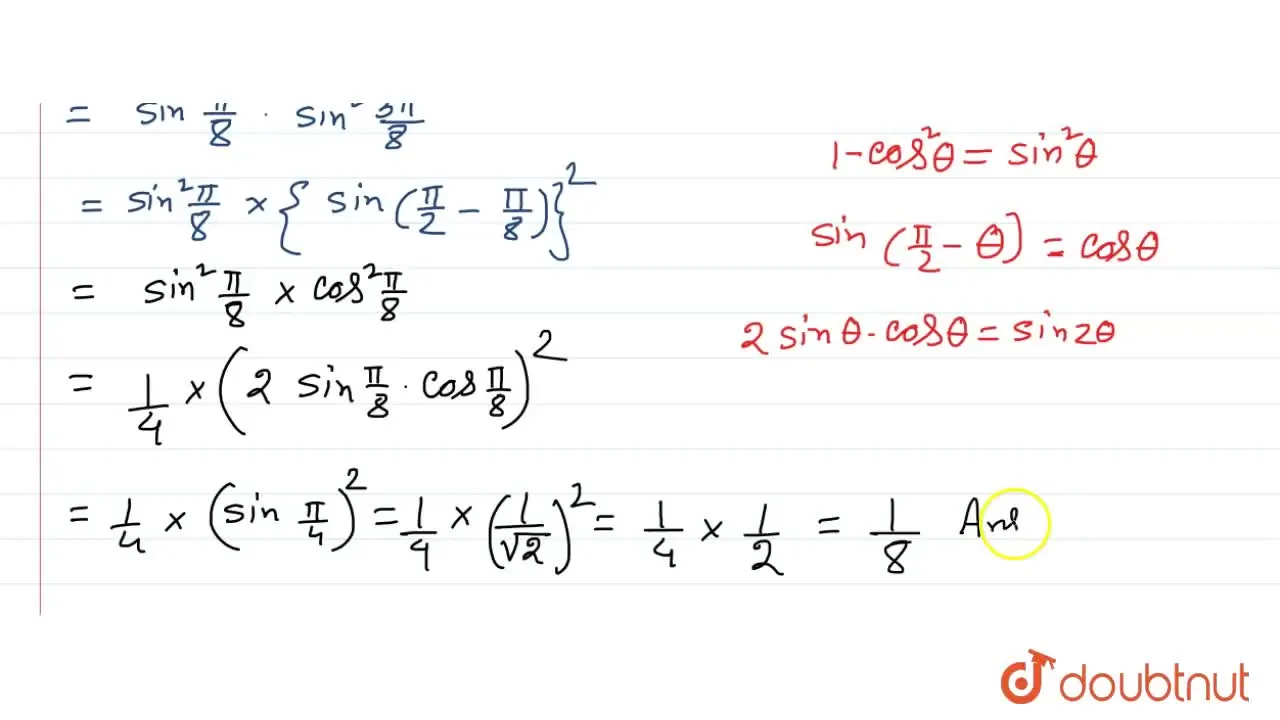 = sin π/8 · sin² 3π/8
= sin² π/8 × { sin (π/2 − π/8) }²
= sin² π/8 × cos² π/8
= 1/4 × (2 sin π/8 · cos π/8)²
= 1/4 × (sin π/4)² = 1/4 × (1/√2)² = 1/4 × 1/2 = 1/8 Ans
1 − cos²θ = sin²θ
sin (π/2 − θ) = cosθ
2 sinθ · cosθ = sin2θ
doubtnut